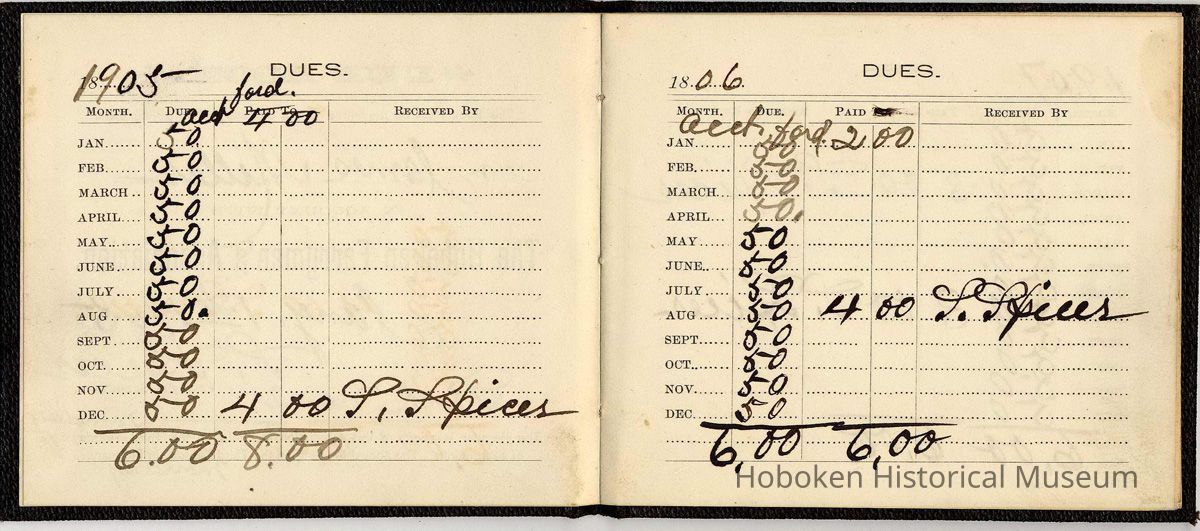 DUES.
1905
acct ford.
MONTH. DUE. PAID TO RECEIVED BY
4 00
JAN. 50
FEB. 50
MARCH 50
APRIL 50
MAY 50
JUNE 50
JULY 50
AUG 50.
SEPT. 50
OCT. 50
NOV. 50
DEC. 50 4 00 S. Spicer
6.00 8.00
DUES.
1806.
MONTH. DUE. PAID RECEIVED BY
acct. ford. 2 00
JAN. 50
FEB. 50
MARCH 50
APRIL 50.
MAY 50
JUNE 50
JULY 50
AUG 50 4 00 S. Spicer
SEPT. 50
OCT. 50
NOV. 50
DEC. 50
6,00 6,00
Hoboken Historical Museum